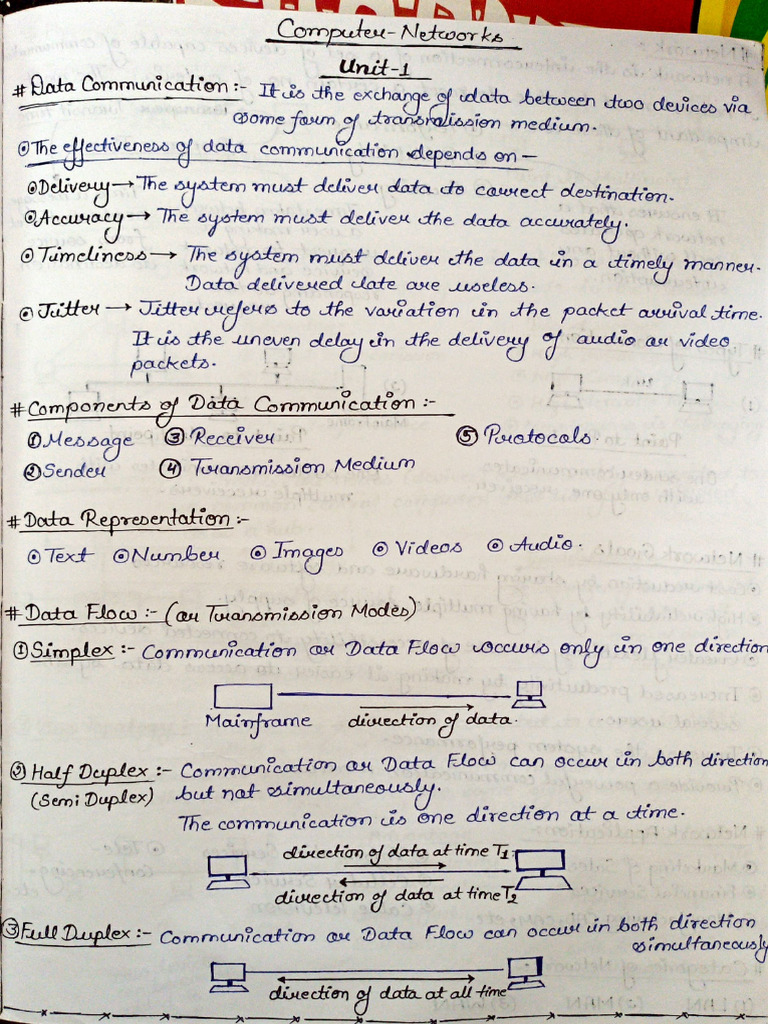 Computer-Networks
Unit-1
# Data Communication :- It is the exchange of data between two devices via
some form of transmission medium.
⊙ The effectiveness of data communication depends on —
⊙ Delivery → The system must deliver data to correct destination.
⊙ Accuracy → The system must deliver the data accurately.
⊙ Timeliness → The system must deliver the data in a timely manner.
Data delivered late are useless.
⊙ Jitter → Jitter refers to the variation in the packet arrival time.
It is the uneven delay in the delivery of audio or video
packets.
# Components of Data Communication :-
① Message ③ Receiver ⑤ Protocols.
② Sender ④ Transmission Medium
# Data Representation :-
⊙ Text ⊙ Number ⊙ Images ⊙ Videos ⊙ Audio.
# Data Flow :- (or Transmission Modes)
① Simplex :- Communication or Data Flow occurs only in one direction
Mainframe direction of data.
② Half Duplex :- Communication or Data Flow can occur in both direction
(Semi Duplex) but not simultaneously.
The communication is one direction at a time.
direction of data at time T1.
direction of data at time T2
③ Full Duplex :- Communication or Data Flow can occur in both direction
simultaneously
direction of data at all time